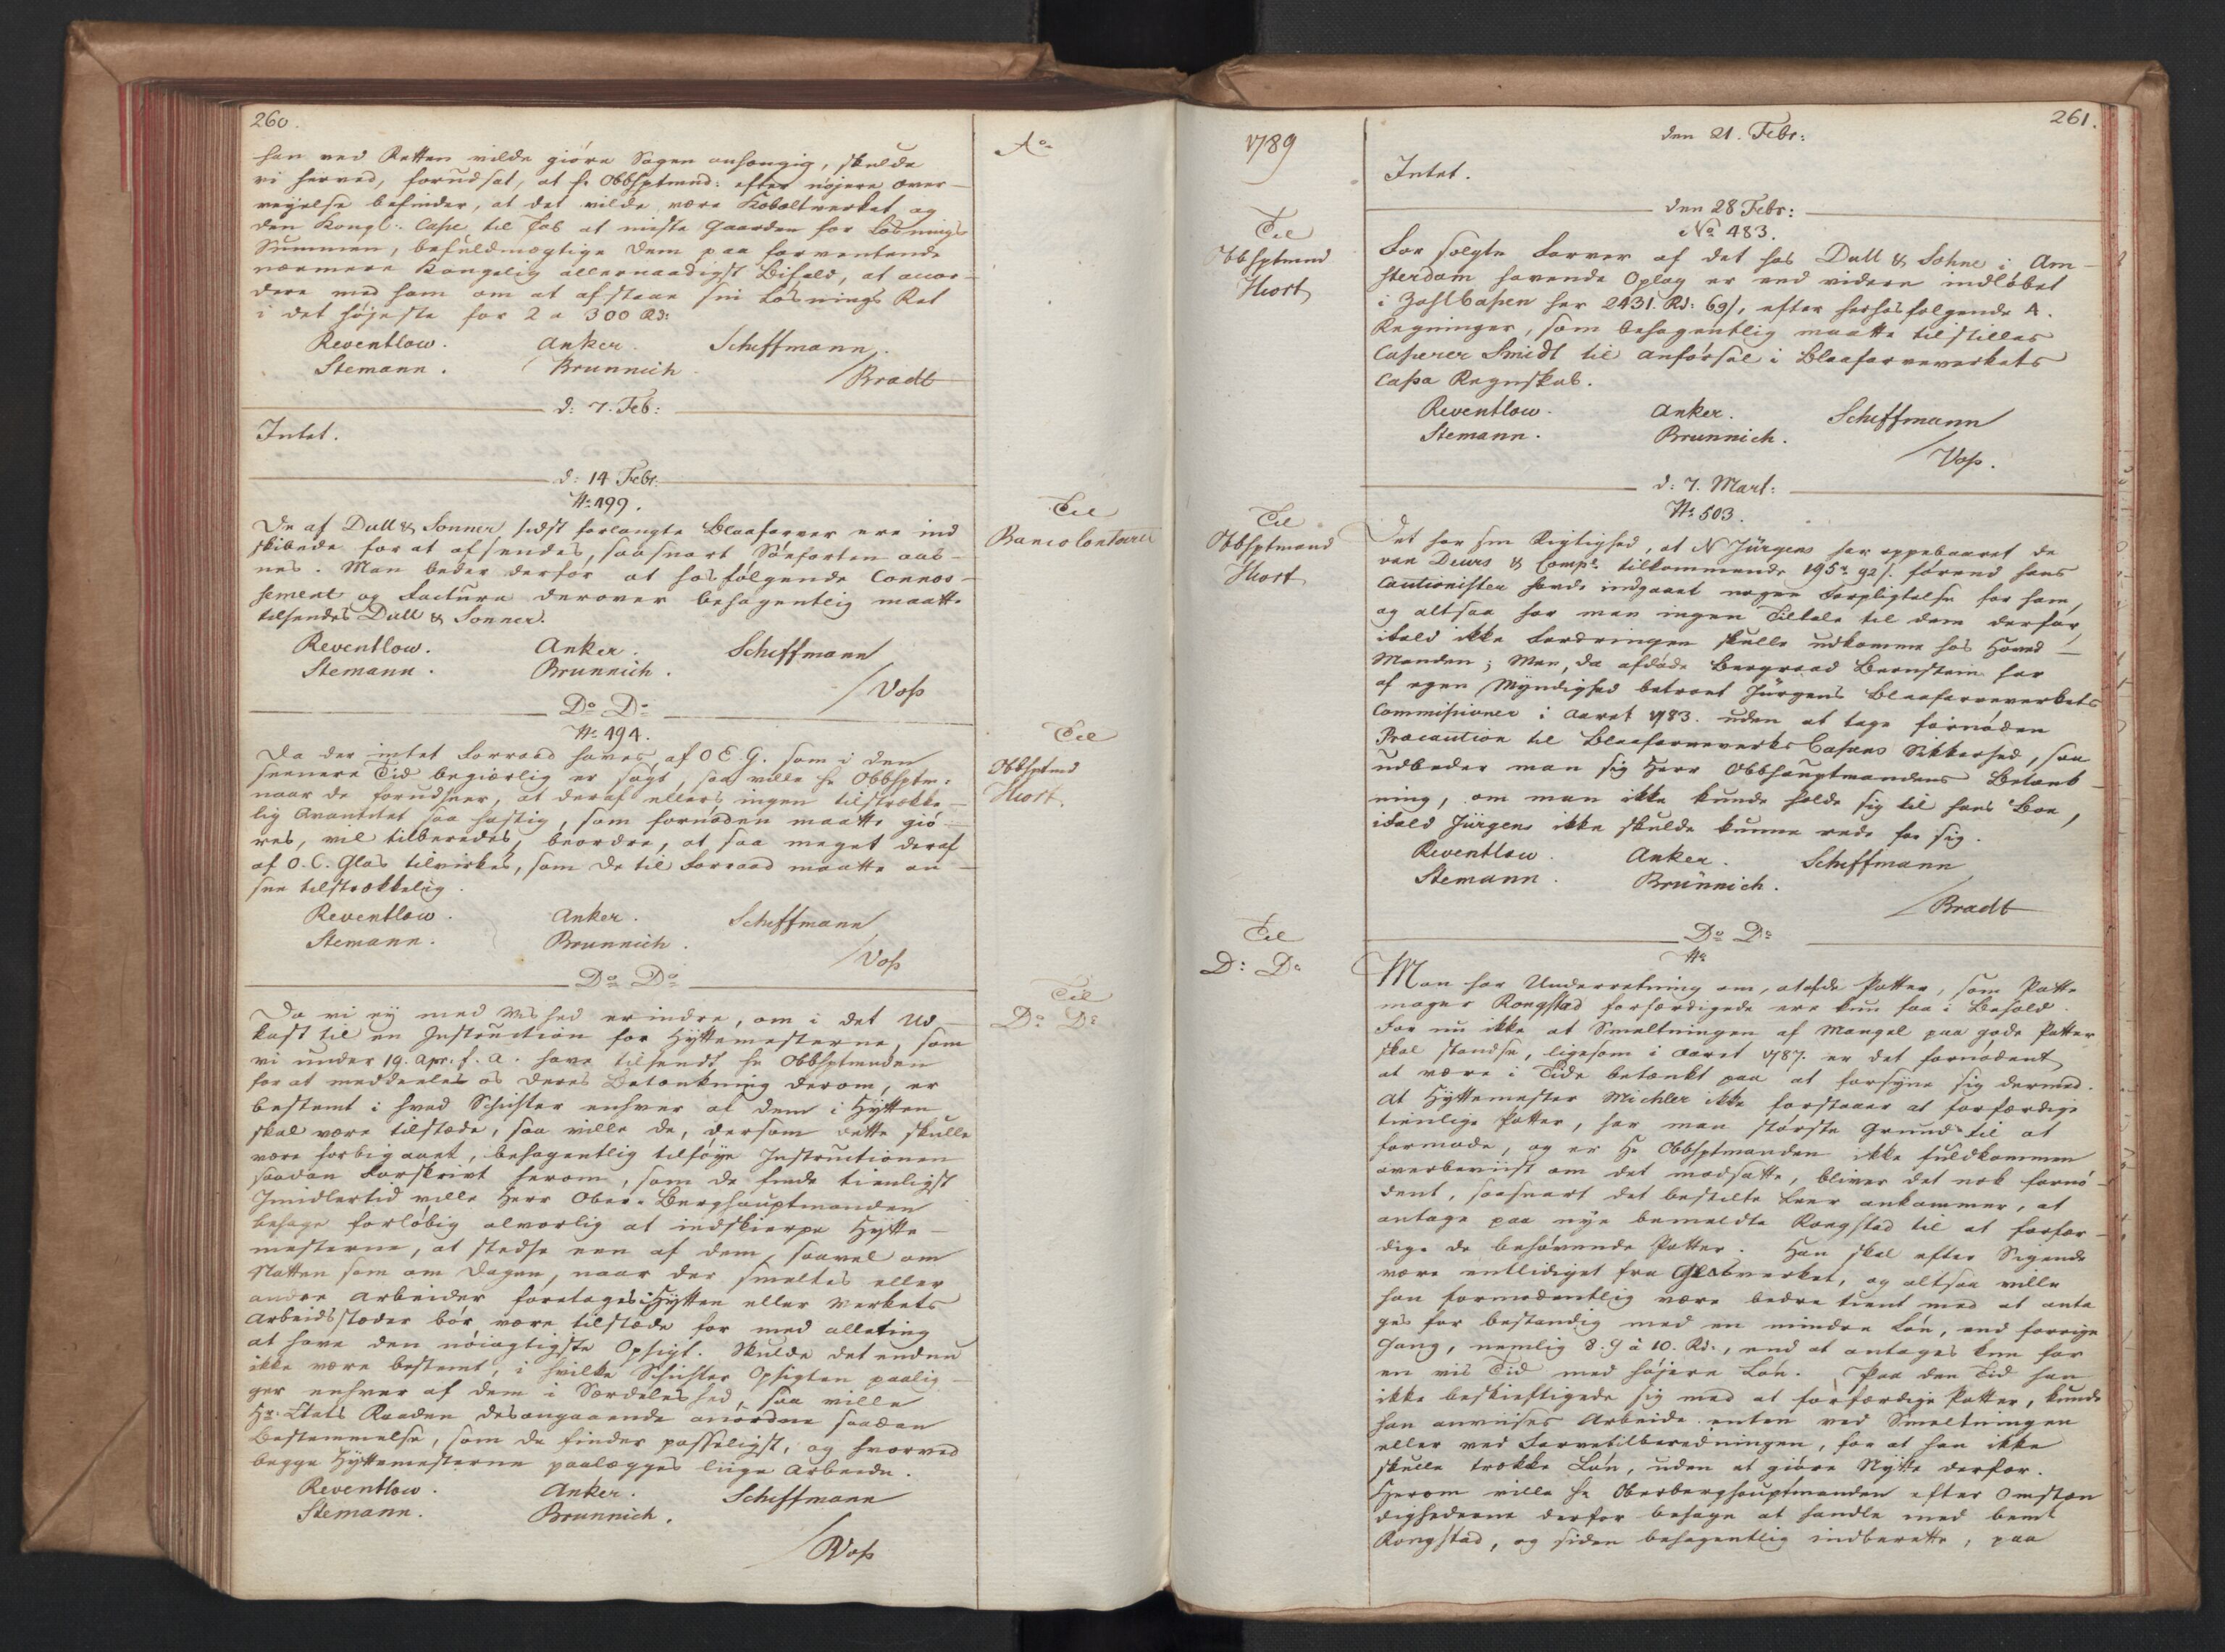 260.
han ved Retten vilde giöre Sagen anhængig, skulde
vi herved, forudsat, at Hr. Obbhptmnd: efter nöjere over-
vejelse befinder, at det vilde være Koboltverket og
den Kongl. Casse til Tab at miste Gaarden for Lösnings
Summen, befuldmægtige Dem paa forventende
nærmere Kongelig allernaadigst Bifald, at accor-
dere med ham om at afstaae sin Lösnings Ret
i det höjeste for 2 a 300 Rd:
Reventlow. Anker. Scheffmann.
Stemann. Brunnich.
/Bradt
d: 7. Feb:
Intet.
d: 14 Febr:
No 499.
De af Dull & Sonner sidst forlangte Blaafarver ere ind
skibede for at afsendes, saasnart Söefarten aab-
nes. Man beder derfor at hosfölgende Connos-
sement og Factura derover behagentlig maatte
tilsendes Dull & Sonner.
Reventlow. Anker. Scheffmann
Stemann. Brunnich.
/Voss
Do Do
No 494.
Da der intet Forraad haves, af O E. G. som i den
seenere Tid begiærlig er sögt, saa ville Hr Obbhptm:
naar de forudseer, at deraf ellers ingen tilstrække-
lig Qvantitet saa hastig, som fornöden maatte giö-
res, vil tilberedes, beordre, at saa meget deraf
af O. C. Glas tilvirkes, som de til Forraad maatte an-
see tilstrækkelig.
Reventlow. Anker. Scheffmann
Stemann. Brunnich.
/Voss
Do Do
Da vi ey med Vished erindre, om i det Ud-
kast til en Instruction for Hyttemesterne, som
vi under 19. Apr. f. a. have tilsendt Hr Obbhptmnden
for at meddeele os deres Betænkning derom, er
bestemt i hvad Schichter enhver af dem i Hytten
skal være tilstæde, saa ville de, dersom dette skulle
være forbigaaet, behagentlig tilföye Instructionen
saadan Forskrivt herom, som de finde tienligst
Imidlertid ville Herr Ober-Berghauptmanden
behage forlöbig alvorlig at indskierpe Hytte-
mesterne, at stedse een af dem, saavel om
Natten som om Dagen, naar der smeltes eller
andre Arbeider foretages i Hytten eller Verkets
Arbeidsstæder bör være tilstæde for med alleting
at have den nöiagtigste Opsigt. Skulde det endnu
ikke være bestemt, i hvilke Schichter Opsigten paalig-
ger enhver af dem i Særdeleshed, saa ville
Hr: Etats Raaden desangaaende anordne saadan
Bestemmelse, som de finder passeligst, og hvorved
begge Hyttemesterne paalægges liige Arbeide.
Reventlow. Anker. Scheffmann
Stemann. Brunnich.
/Voss
Ao
Til
Banco Contoiret
Til
Obbhptmd
Hiort.
Til
Do Do
1789
Til
Obbhptmnd
Hiort
Til
Obbhptmand
Hiort
Til
Do Do
261.
den 21. Febr:
Intet.
den 28 Febr:
No 483.
For solgte Farver af det hos Dull & Sohne i Am-
sterdam havende Oplag er end videre indlöbet
i Zahlcassen her 2431 Rd: 69/, efter herhos fölgende 4.
Regninger, som behagentlig maatte tilstilles
Casserer Smidt til anförsel i Blaafarveverkets
Cassa Regnskab.
Reventlow. Anker. Scheffmann
Stemann. Brunnich.
/Voss.
d: 7. Mart:
No 503.
Det har sin Rigtighed, at N Jürgens har oppebaaret de
van Deurs & Compe tilkommende 195 r 92/. förend hans
Cautionister havde indgaaet nogen Forpligtelse for ham,
og altsaa har man ingen Tiltale til dem derfor,
ifald ikke Fordringen skulle udkomme hos Hoved-
Manden; Men, da afdöde Bergraad Bernstein har
af egen Myndighed betroet Jürgens Blaafarveverkets
Commissioner i Aaret 1783. uden at tage fornöden
Præcaution til Blaafarveverks Cassens Sikkerhed, saa
udbeder man sig Herr Obbhauptmandens Betænk-
ning, om man ikke kunde holde sig til hans Boe,
ifald Jürgens ikke skulde kunne rede for sig.
Reventlow. Anker. Scheffmann
Stemann. Brünnich.
/Bradt
Do Do
No
Man har Underretning om, at af de Potter, som Potte
mager Rongstad forfærdigede ere kun faa i Behold.
For nu ikke at Smeltningen af Mangel paa gode Potter
skal standse, ligesom i Aaret 1787. er det fornödent
at være i Tide betænkt paa at forsyne sig dermed.
At Hyttemester Michler ikke forstaaer at forfærdige
tienlige Potter, har man störste Grund til at
formode, og er Hr Obbhptmanden ikke fuldkommen
overbeviist om det modsatte, bliver det nok fornö-
dent, saasnart det bestilte Leer ankommer, at
antage paa nye bemeldte Rongstad til at forfær-
dige de behövende Potter. Han skal efter Sigende
være entlediget fra Glasverket, og altsaa ville
han formodentlig være bedre tient med at anta
ges for bestandig med en mindre Lön, end forrige
Gang, nemlig 8. 9 à 10. Rd., end at antages kun for
en vis Tid med höjere Lön. Paa den Tid han
ikke beskieftigede sig med at forfærdige Potter, kunde
han anviises Arbeide enten ved Smeltningen
eller ved Farvetilberedningen, for at han ikke
skulle trække Lön, uden at giöre Nytte derfor.
Herom ville Hr Oberberghauptmanden efter Omstæn
dighederne derfor behage at handle med bemt
Rongstad, og siden behagentlig indberette, paa